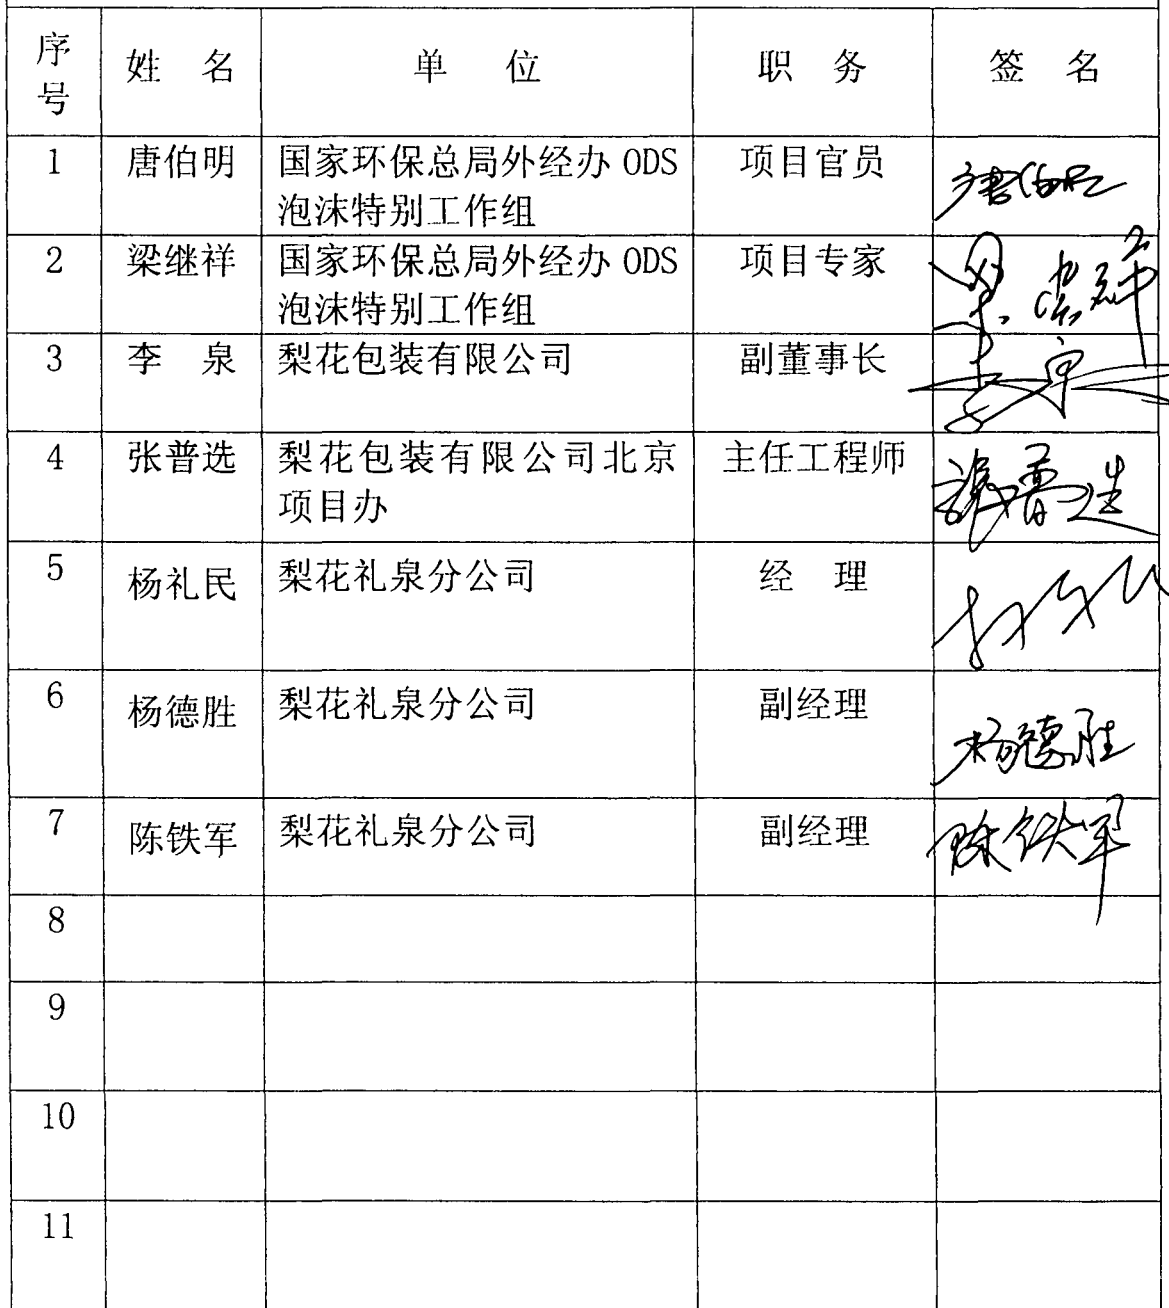 序号 姓 名 单 位 职 务 签 名
1 唐伯明 国家环保总局外经办 ODS 项目官员 唐伯明
泡沫特别工作组
2 梁继祥 国家环保总局外经办 ODS 项目专家
泡沫特别工作组
3 李 泉 梨花包装有限公司 副董事长
4 张普选 梨花包装有限公司北京 主任工程师 张普选
项目办
5 杨礼民 梨花礼泉分公司 经 理
6 杨德胜 梨花礼泉分公司 副经理 杨德胜
7 陈铁军 梨花礼泉分公司 副经理 陈铁军
8
9
10
11